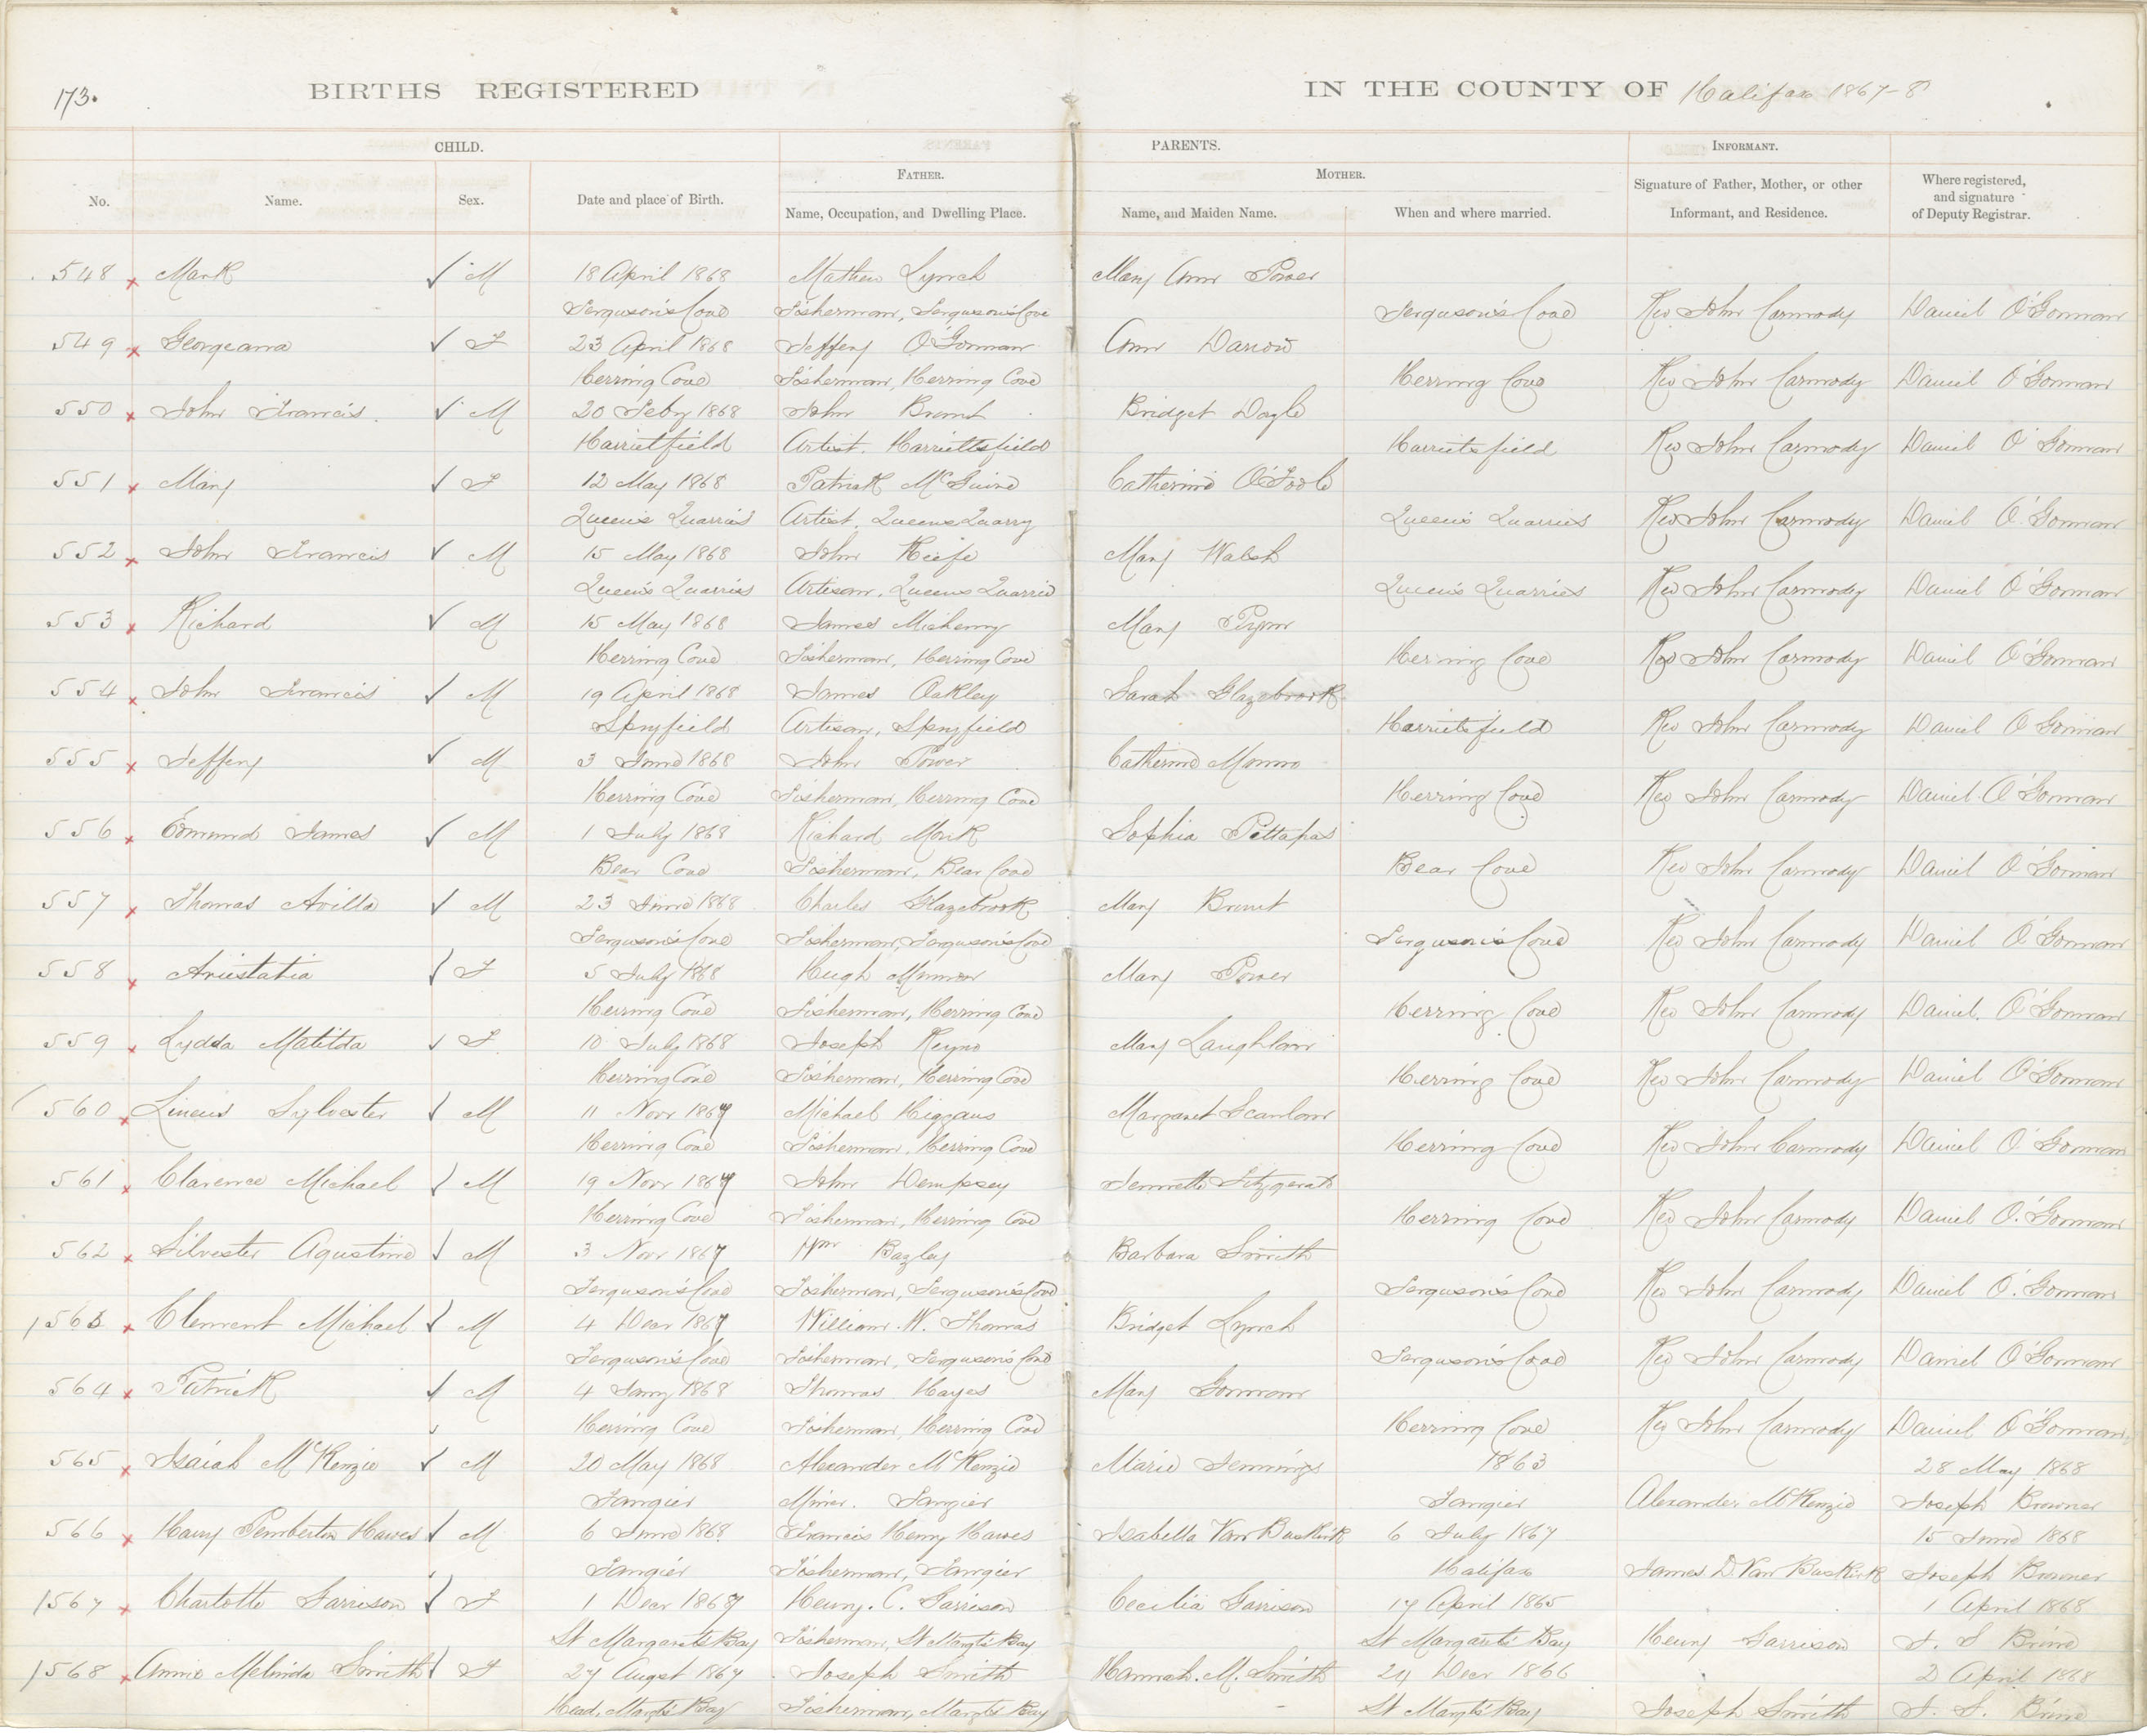 173.
BIRTHS REGISTERED IN THE COUNTY OF Halifax 1867-8
CHILD. PARENTS. INFORMANT.
FATHER. MOTHER.
No. Name. Sex. Date and place of Birth. Name, Occupation, and Dwelling Place. Name, and Maiden Name. When and where married. Signature of Father, Mother, or other Informant, and Residence. Where registered, and signature of Deputy Registrar.
548 x Mark ✓ M 18 April 1868 Mathew Lynch Mary Ann Power
Ferguson's Cove Fisherman, Ferguson's Cove Ferguson's Cove Rev John Carmody Daniel O'Gorman
549 x Georgeanna ✓ F 23 April 1868 Jeffery O'Gorman Ann Darrow
Herring Cove Fisherman, Herring Cove Herring Cove Rev John Carmody Daniel O'Gorman
550 x John Francis. ✓ M 20 Feby 1868 John Brunt Bridget Doyle
Harrietfield Artist. Harriettsfield Harrietsfield Rev John Carmody Daniel O'Gorman
551 x Mary ✓ F 12 May 1868 Patrick McGuire Catherine O'Toole
Queen's Quarries Artist, Queens Quarry Queen's Quarries Rev John Carmody Daniel O'Gorman
552 x John Francis ✓ M 15 May 1868 John Keefe Mary Walsh
Queen's Quarries Artisan, Queens Quarries Queen's Quarries Rev John Carmody Daniel O'Gorman
553 x Richard ✓ M 15 May 1868 James Mary Pymn
Herring Cove Fisherman, Herring Cove Herring Cove Rev John Carmody Daniel O'Gorman
554 x John Francis ✓ M 19 April 1868 James Oakley Sarah Glazebrook
Spryfield Artisan, Spryfield Harrietsfield Rev John Carmody Daniel O'Gorman
555 x Jeffery ✓ M 3 June 1868 John Power Catherine Munro
Herring Cove Fisherman, Herring Cove Herring Cove Rev John Carmody Daniel O'Gorman
556 x Edmund James ✓ M 1 July 1868 Richard Monk Sophia Pettapas
Bear Cove Fisherman, Bear Cove Bear Cove Rev John Carmody Daniel O'Gorman
557 x Thomas Avilla ✓ M 23 June 1868 Charles Glazebrook Mary Brunt
Ferguson's Cove Fisherman, Ferguson's Cove Ferguson's Cove Rev John Carmody Daniel O'Gorman
558 x Anistatia ✓ F 5 July 1868 Hugh Mary Power
Herring Cove Fisherman, Herring Cove Herring Cove Rev John Carmody Daniel O'Gorman
559 x Lydda Matilda ✓ F 10 July 1868 Joseph Reyno Mary Laughlan
Herring Cove Fisherman, Herring Cove Herring Cove Rev John Carmody Daniel O'Gorman
560 x Lineus Sylvester ✓ M 11 Novr 1867 Michael Higgans Margaret Scanlan
Herring Cove Fisherman, Herring Cove Herring Cove Rev John Carmody Daniel O'Gorman
561 x Clarence Michael ✓ M 19 Novr 1867 John Dempsey Jennette Fitzgerald
Herring Cove Fisherman, Herring Cove Herring Cove Rev John Carmody Daniel O'Gorman
562 x Silvester Agustine ✓ M 3 Novr 1867 Wm Bazley Barbara Smith
Ferguson's Cove Fisherman, Ferguson's Cove Ferguson's Cove Rev John Carmody Daniel O'Gorman
563 x Clement Michael ✓ M 4 Decr 1867 William W. Thomas Bridget Lynch
Ferguson's Cove Fisherman, Ferguson's Cove Ferguson's Cove Rev John Carmody Daniel O'Gorman
564 x Patrick ✓ M 4 Jany 1868 Thomas Hayes Mary Gorman
Herring Cove Fisherman, Herring Cove Herring Cove Rev John Carmody Daniel O'Gorman
565 x Isaiah McKenzie ✓ M 20 May 1868 Alexander McKenzie Marie Jennings 1863 28 May 1868
Tangier Miner. Tangier Tangier Alexander McKenzie Joseph Browner
566 x Harry Pemberton Hawes ✓ M 6 June 1868 Francis Henry Hawes Isabella Van Buskirk 6 July 1867 15 June 1868
Tangier Fisherman, Tangier Halifax James D. Van Buskirk Joseph Browner
567 x Charlotte Garrison ✓ F 1 Decr 1867 Henry. C. Garrison Cecilia Garrison 17 April 1865 1 April 1868
St Margarets Bay Fisherman, St Margts Bay St Margarets Bay Henry Garrison J. S. Brine
568 x Annie Melinda Smith ✓ F 27 Augst 1867 Joseph Smith Hannah. M. Smith 24 Decr 1866 2 April 1868
Head, Margts Bay Fisherman, Margts Bay St Margts Bay Joseph Smith J. S. Brine